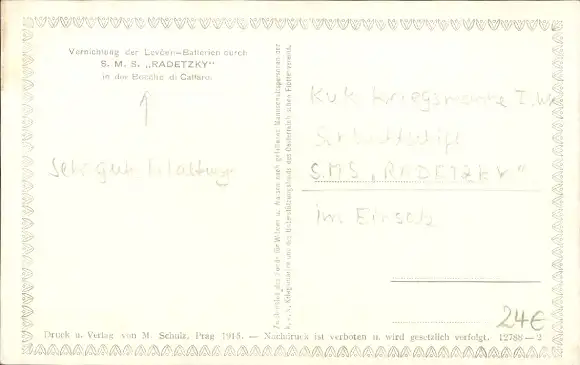 Vernichtung der Lovčen-Batterien durch
S. M. S. „RADETZKY"
in der Bocche di Cattaro.
Sehr gut
Zu Gunsten des Fonds für Witwen u. Waisen nach gefallenen Mannschaftspersonen der
k. u. k. Kriegsmarine und des Unterstützungsfonds des Österreichischen Flottenvereins.
K.u.K. Kriegsmarine I. WK
Schlachtschiff
S.M.S. „RADETZKY"
im Einsatz
24€
Druck u. Verlag von M. Schulz, Prag 1915. — Nachdruck ist verboten u. wird gesetzlich verfolgt. 12788—2